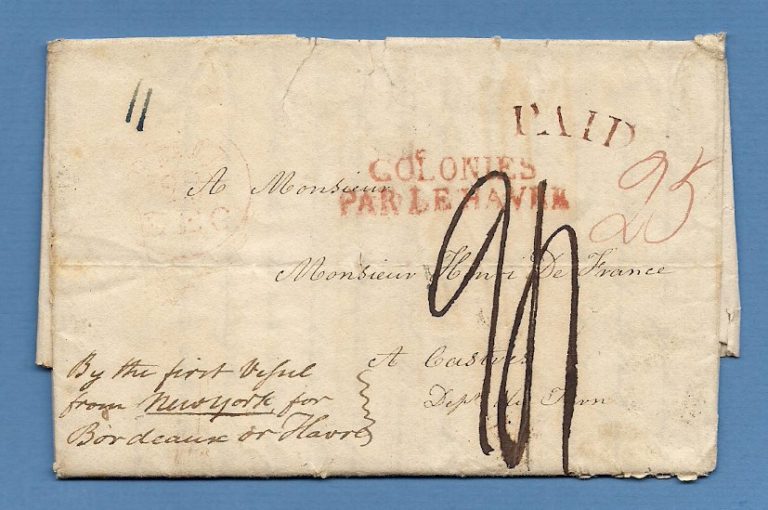 11
PAID
COLONIES
PAR LE HAVRE
25
DEC
A Monsieur
Monsieur Henri De France
A Castres
Dept du Tarn
By the first Vessel
from New York for
Bordeaux or Havre